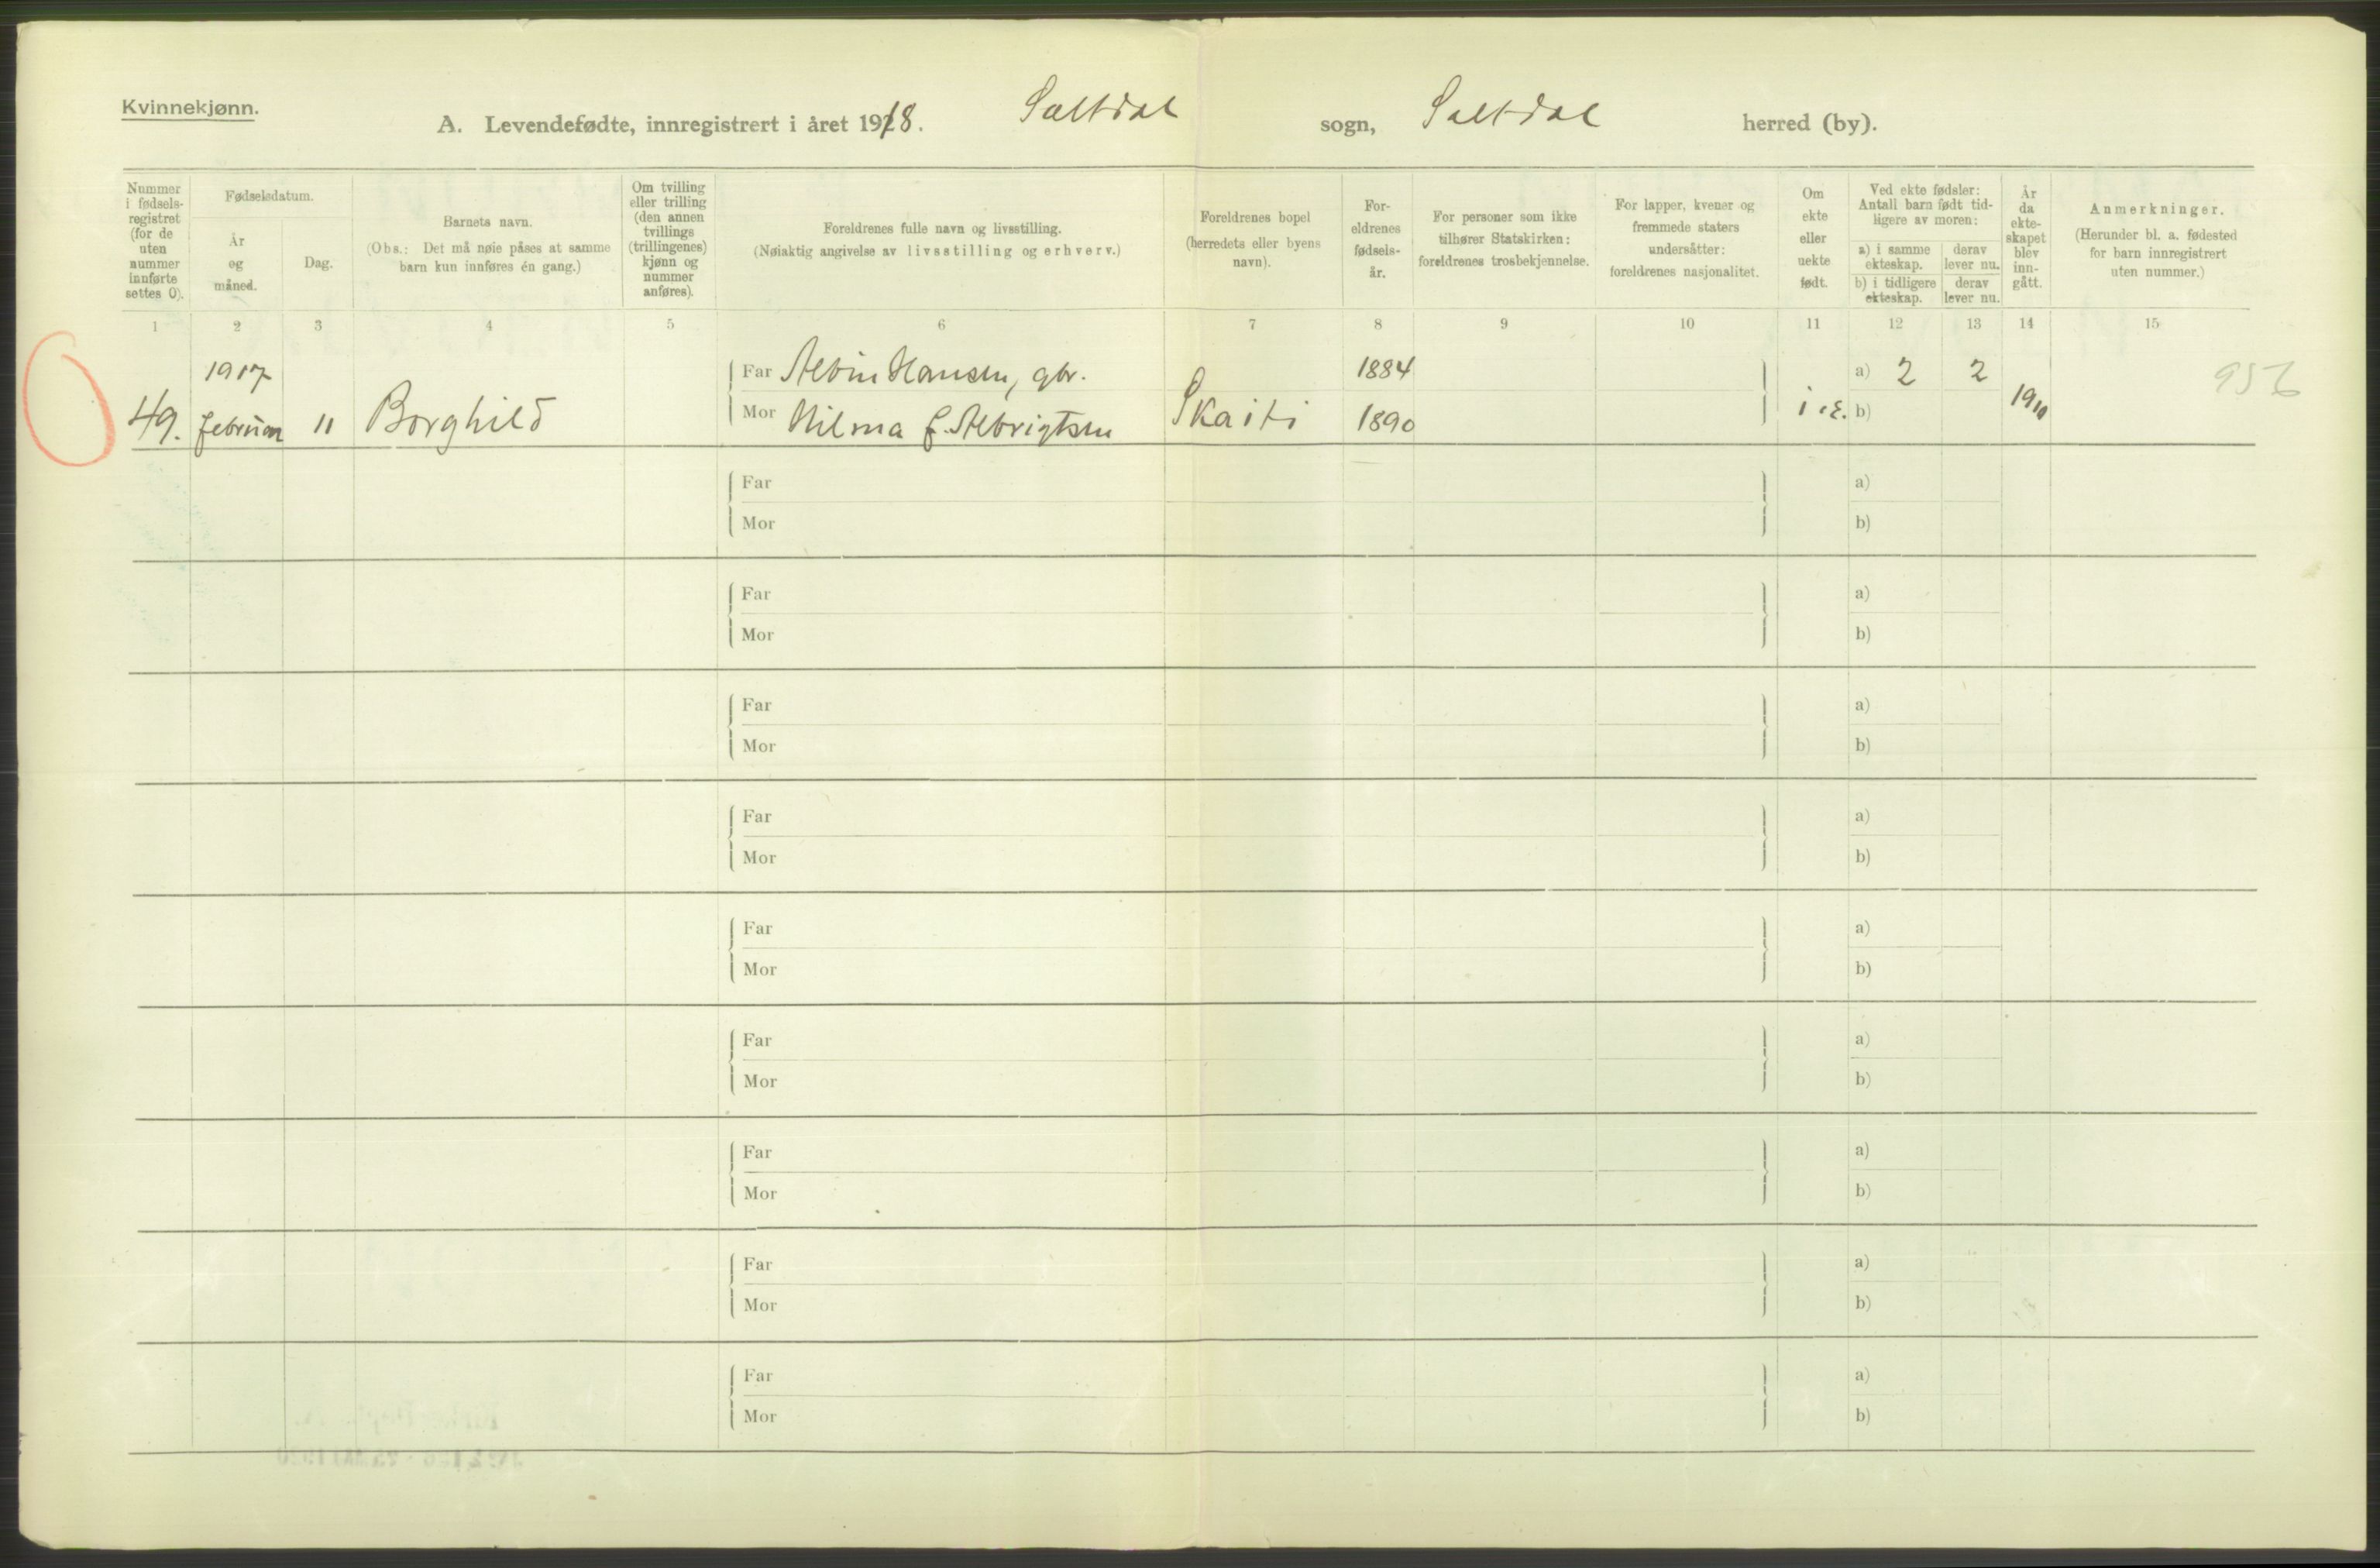 Kvinnekjønn.
A. Levendefødte, innregistrert i året 1918. Saltdal sogn, Saltdal herred (by).
Nummer i fødselsregistret (for de uten nummer innførte settes 0).
Fødselsdatum.
År og måned.
Dag.
Barnets navn.
(Obs.: Det må nøie påses at samme barn kun innføres én gang.)
Om tvilling eller trilling (den annen tvillings (trillingenes) kjønn og nummer anføres).
Foreldrenes fulle navn og livsstilling.
(Nøiaktig angivelse av livsstilling og erhverv.)
Foreldrenes bopel (herredets eller byens navn).
Foreldrenes fødselsår.
For personer som ikke tilhører Statskirken: foreldrenes trosbekjennelse.
For lapper, kvener og fremmede staters undersåtter: foreldrenes nasjonalitet.
Om ekte eller uekte født.
Ved ekte fødsler: Antall barn født tidligere av moren:
a) i samme ekteskap. derav lever nu.
b) i tidligere ekteskap. derav lever nu.
År da ekteskapet blev inngått.
Anmerkninger.
(Herunder bl. a. fødested for barn innregistrert uten nummer.)
1 2 3 4 5 6 7 8 9 10 11 12 13 14 15
1917 Far Albin Hansen, gbr. 1884 a) 2 2 956
49. februar 11 Borghild Mor Hilma f. Albrigtsen Skaiti 1890 i.e. b) 1910
Far a)
Mor b)
Far a)
Mor b)
Far a)
Mor b)
Far a)
Mor b)
Far a)
Mor b)
Far a)
Mor b)
Far a)
Mor b)
Far a)
Mor b)
Far a)
Mor b)